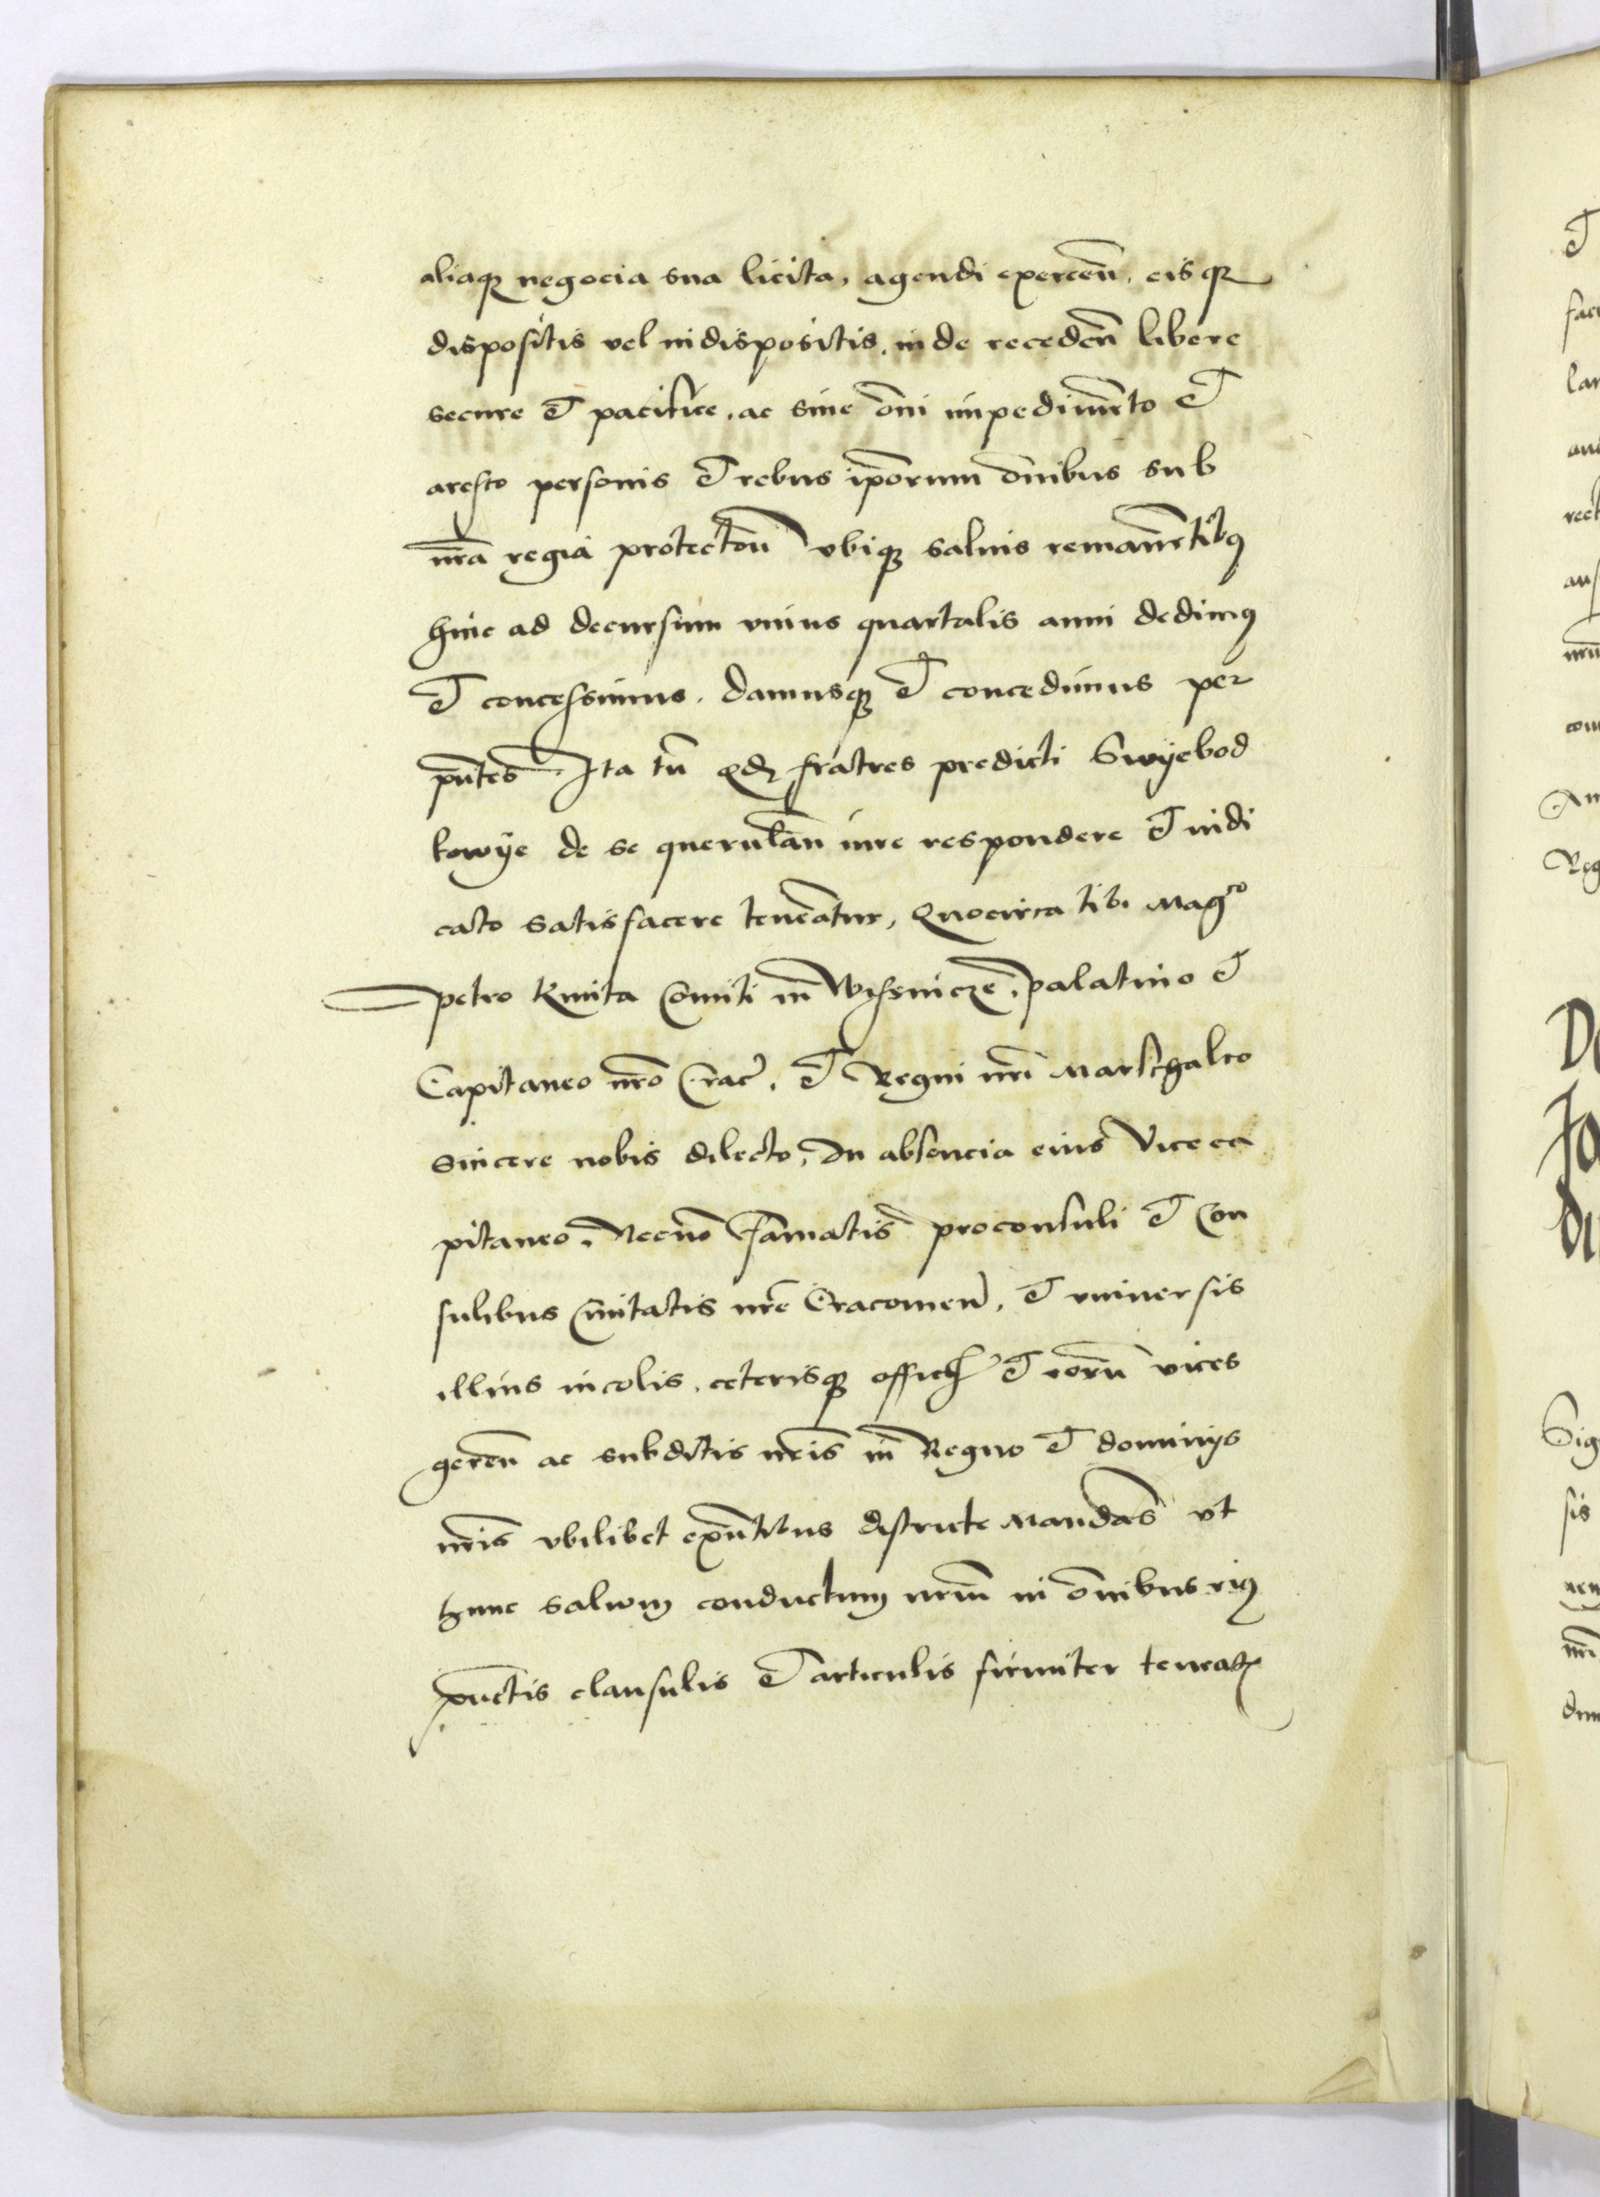 aliaq3 negocia sua licita, agendi exercen̄. eisq3
dispositis vel indispositis. inde receden̄ libere
secure et pacifice. ac sine om̄i impedimēto et
aresto personis et rebus ip̄orum om̄ibus sub
nr̄a regia protectōn vbiq3 saluis remanētib9
hinc ad decursum vnius quartalis anni dedim9
et concessimus. damusq3 et concedimus per
p̄ntes Ita tn̄ qd fratres predicti Swyebod
kowye de se querulan̄ iure respondere et iudi
cato satisfacere teneātur, Quocirca tibi Magco
petro kmita Comiti in Wissnicze. palatino et
Capitaneo nr̄o Crac. et Regni nr̄i Marschalco
sincere nobis dilecto. In absencia eius Viceca
pitaneo. Necnō famatis proconsuli et Con
sulibus Ciuitatis nr̄e Cracouien. et vniuersis
illius incolis. ceterisq3 offic et eorū vices
geren̄ ac subditis nr̄is in Regno et dominijs
nr̄is vbilibet exn̄tibus districte Mandās vt
hunc saluum conductum nr̄um in om̄ibus ei9
pūctis clausulis et articulis firmiter teneat